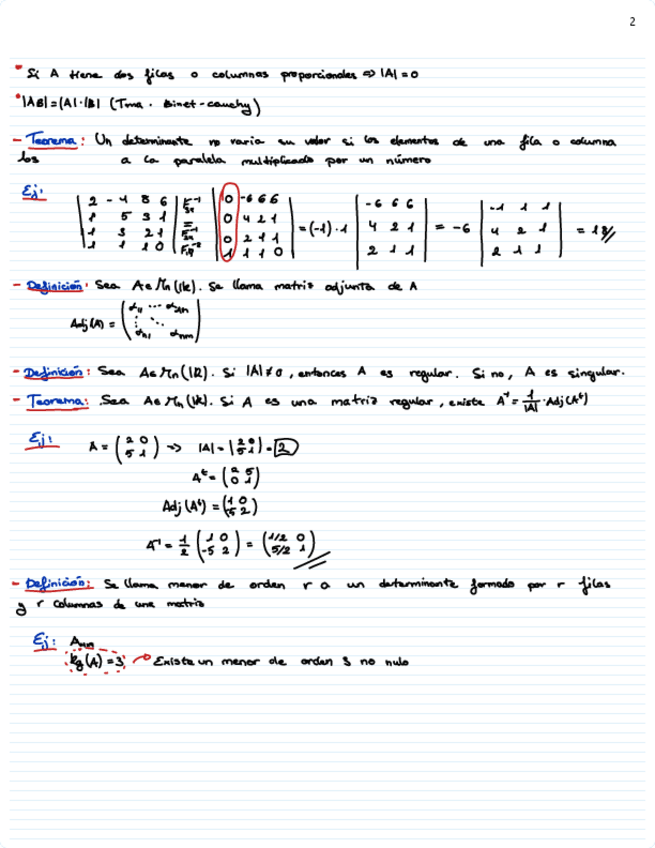 2
• Si A tiene dos filas o columnas proporcionales => |A|=0
• |AB|=|A|·|B| (Tma. Binet-cauchy)
- Teorema: Un determinante no varia su valor si los elementos de una fila o columna
los a la paralela multiplicado por un número
Ej:
| 2 -4 8 6 | | 0 -6 6 6 | | -6 6 6 | | -1 1 1 |
| 1 5 3 1 | | 0 4 2 1 | = (-1)·1 | 4 2 1 | = -6 | 4 2 1 | = 18
| 1 3 2 1 | = | 0 2 1 1 | | 2 1 1 | | 2 1 1 |
| 1 1 1 0 | | 1 1 1 0 |
- Definición: Sea A∈Mn(IK). Se llama matriz adjunta de A
Adj(A) =
- Definición: Sea A∈Mn(IR). Si |A|≠0, entonces A es regular. Si no, A es singular.
- Teorema: Sea A∈Mn(IK). Si A es una matriz regular, existe A⁻¹ = 1/|A| · Adj(Aᵗ)
Ej: A = (2 0 / 5 1) => |A| = |2 0 / 5 1| = 2
Aᵗ = (2 5 / 0 1)
Adj(Aᵗ) = (1 0 / -5 2)
A⁻¹ = 1/2 (1 0 / -5 2) = (1/2 0 / 5/2 1)
- Definición: Se llama menor de orden r a un determinante formado por r filas
y r columnas de una matriz
Ej:
Rg(A) = 3 Existe un menor de orden 3 no nulo